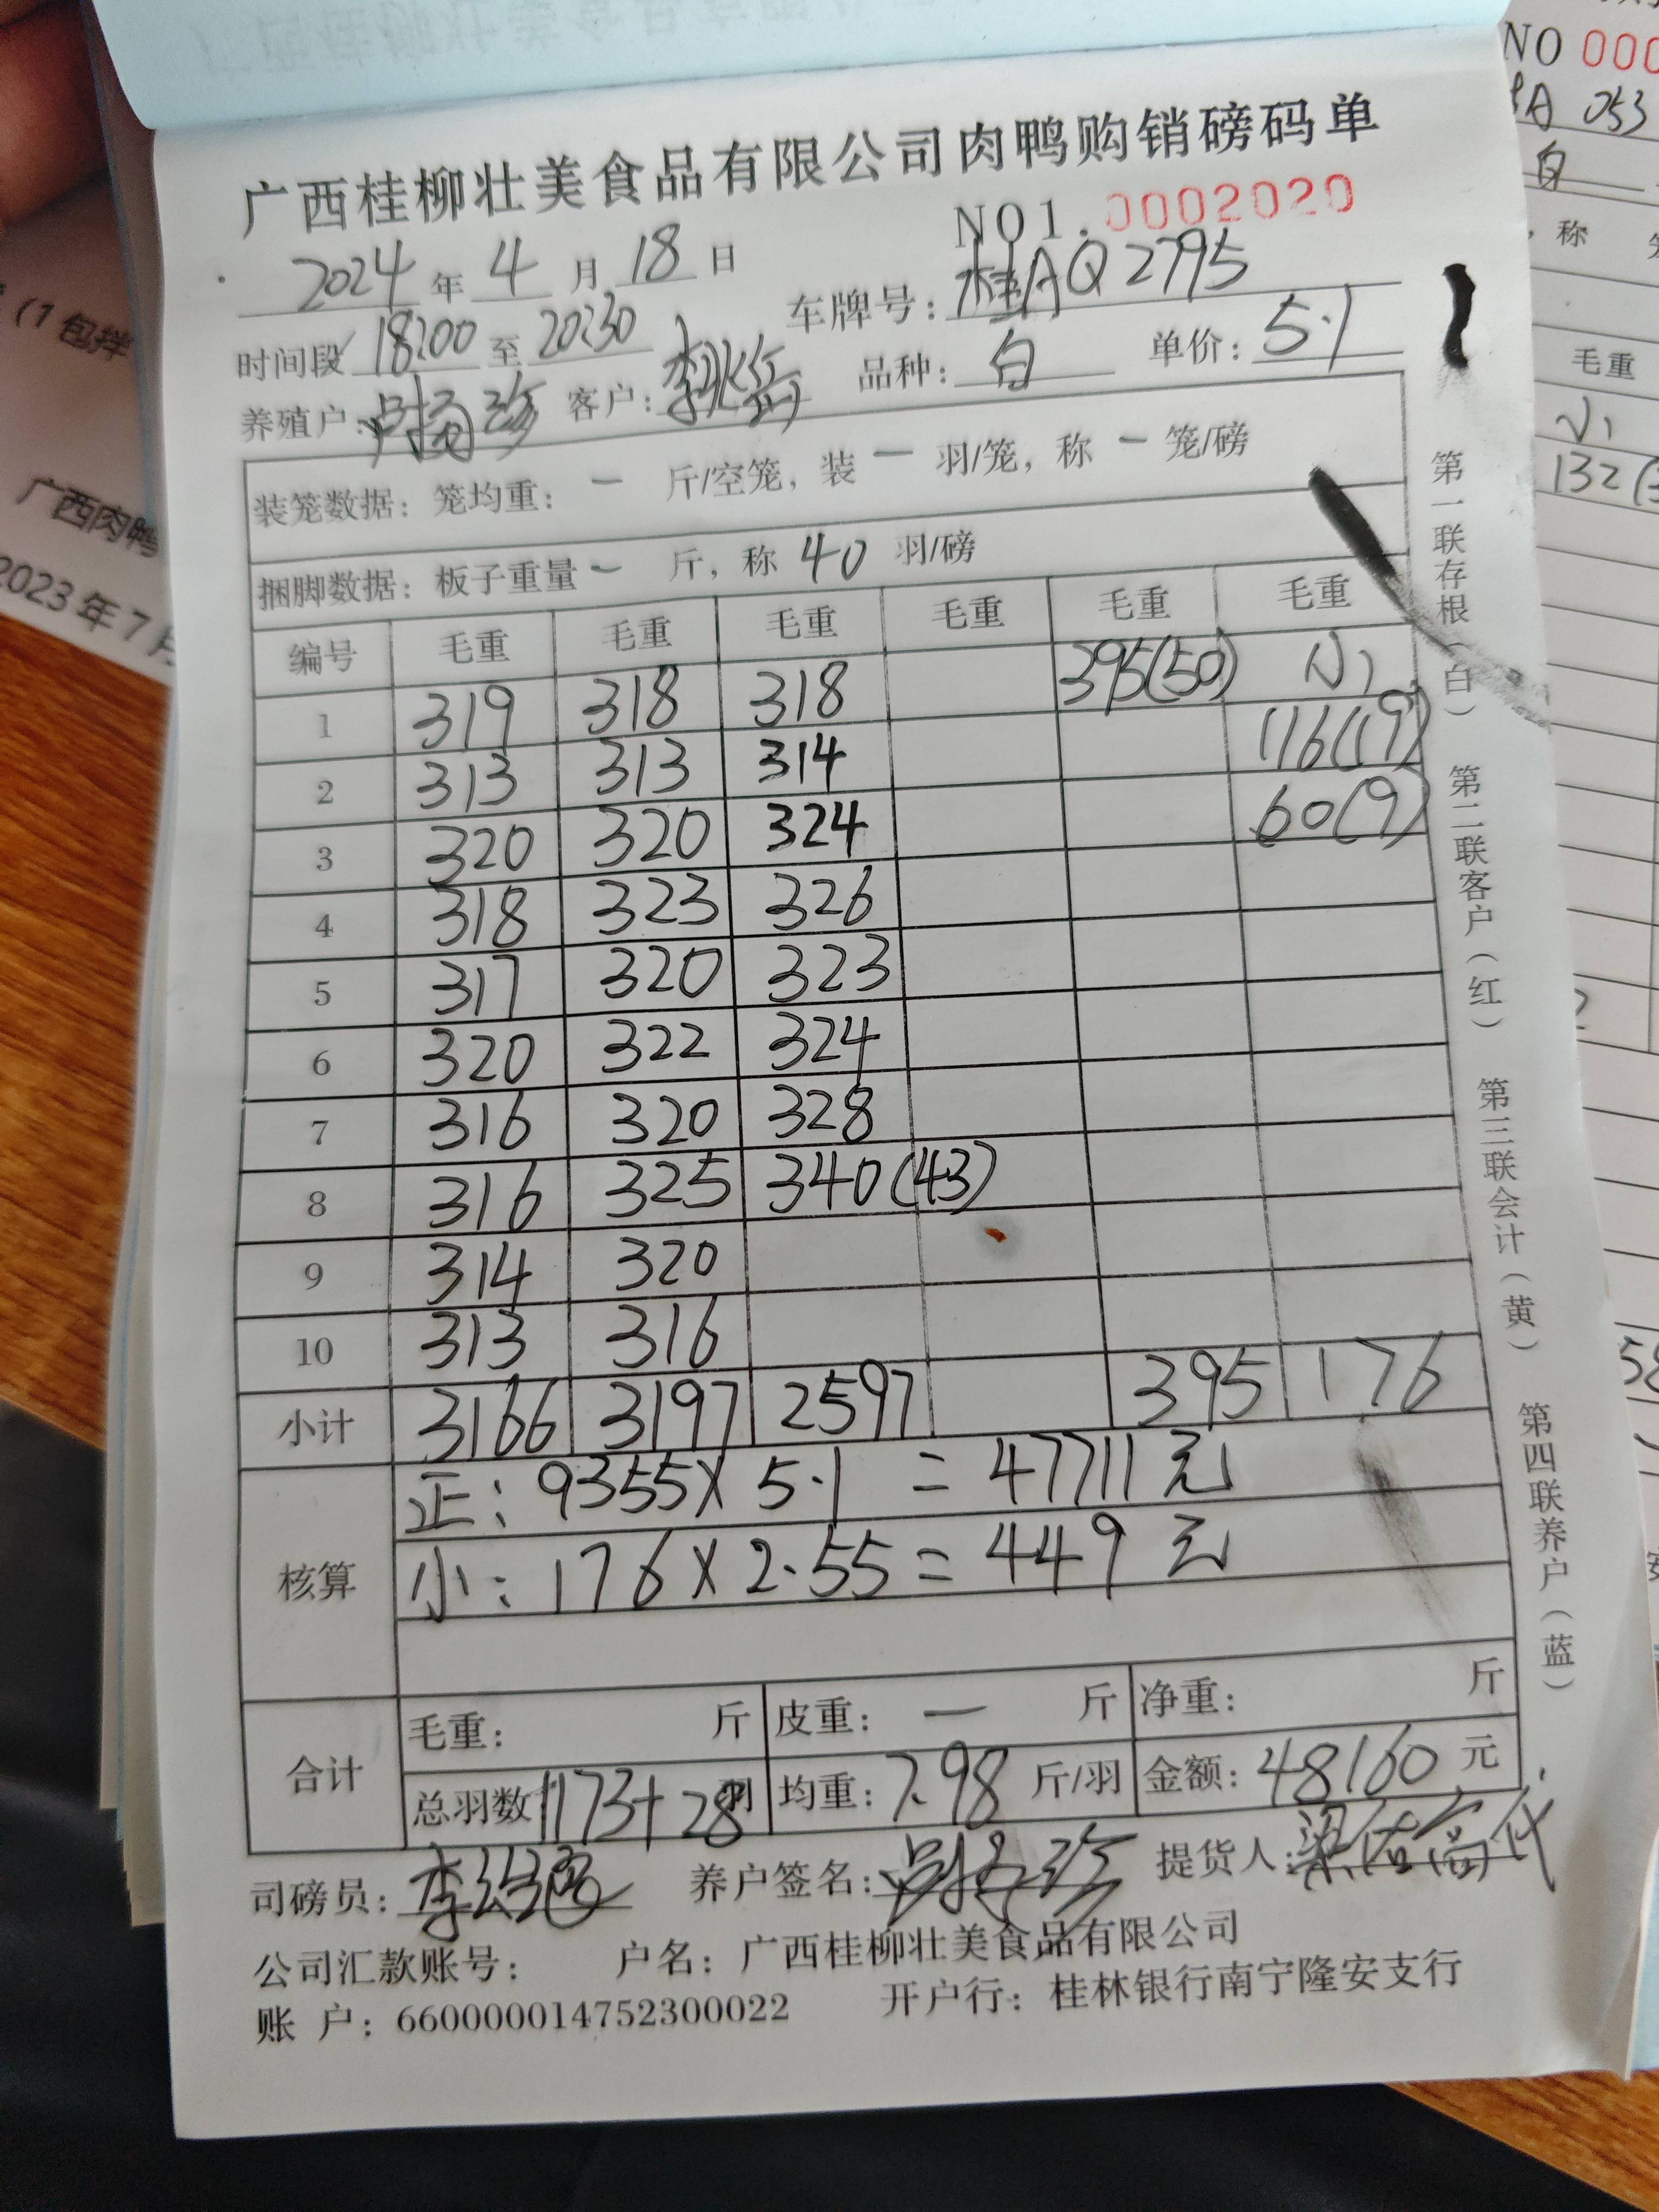 广西桂柳壮美食品有限公司肉鸭购销磅码单
NO1. 0002020
2024 年 4 月 18 日
车牌号: 桂AQ2795
时间段 18:00 至 20:30
养殖户: 客户: 李 品种: 白 单价: 5.1
装笼数据: 笼均重: — 斤/空笼, 装 — 羽/笼, 称 — 笼/磅
捆脚数据: 板子重量 — 斤, 称 40 羽/磅
编号 毛重 毛重 毛重 毛重 毛重 毛重
1 319 318 318 395(50) 小
2 313 313 314 116(19)
3 320 320 324 60(9)
4 318 323 326
5 317 320 323
6 320 322 324
7 316 320 328
8 316 325 340(43)
9 314 320
10 313 316
小计 3166 3197 2597 395 176
核算
正: 9355X 5.1 = 47711元
小: 176 X 2.55 = 449 元
合计
毛重: 斤 皮重: — 斤 净重: 斤
总羽数 1173+28羽 均重: 7.98 斤/羽 金额: 48160 元
司磅员: 李 养户签名: 提货人: 代
公司汇款账号: 户名: 广西桂柳壮美食品有限公司
账 户: 660000014752300022 开户行: 桂林银行南宁隆安支行
第一联存根(白) 第二联客户(红) 第三联会计(黄) 第四联养户(蓝)
(1包拌
广西肉鸭
2023年7月
NO 000
A 053
白
称
毛重
小
132(